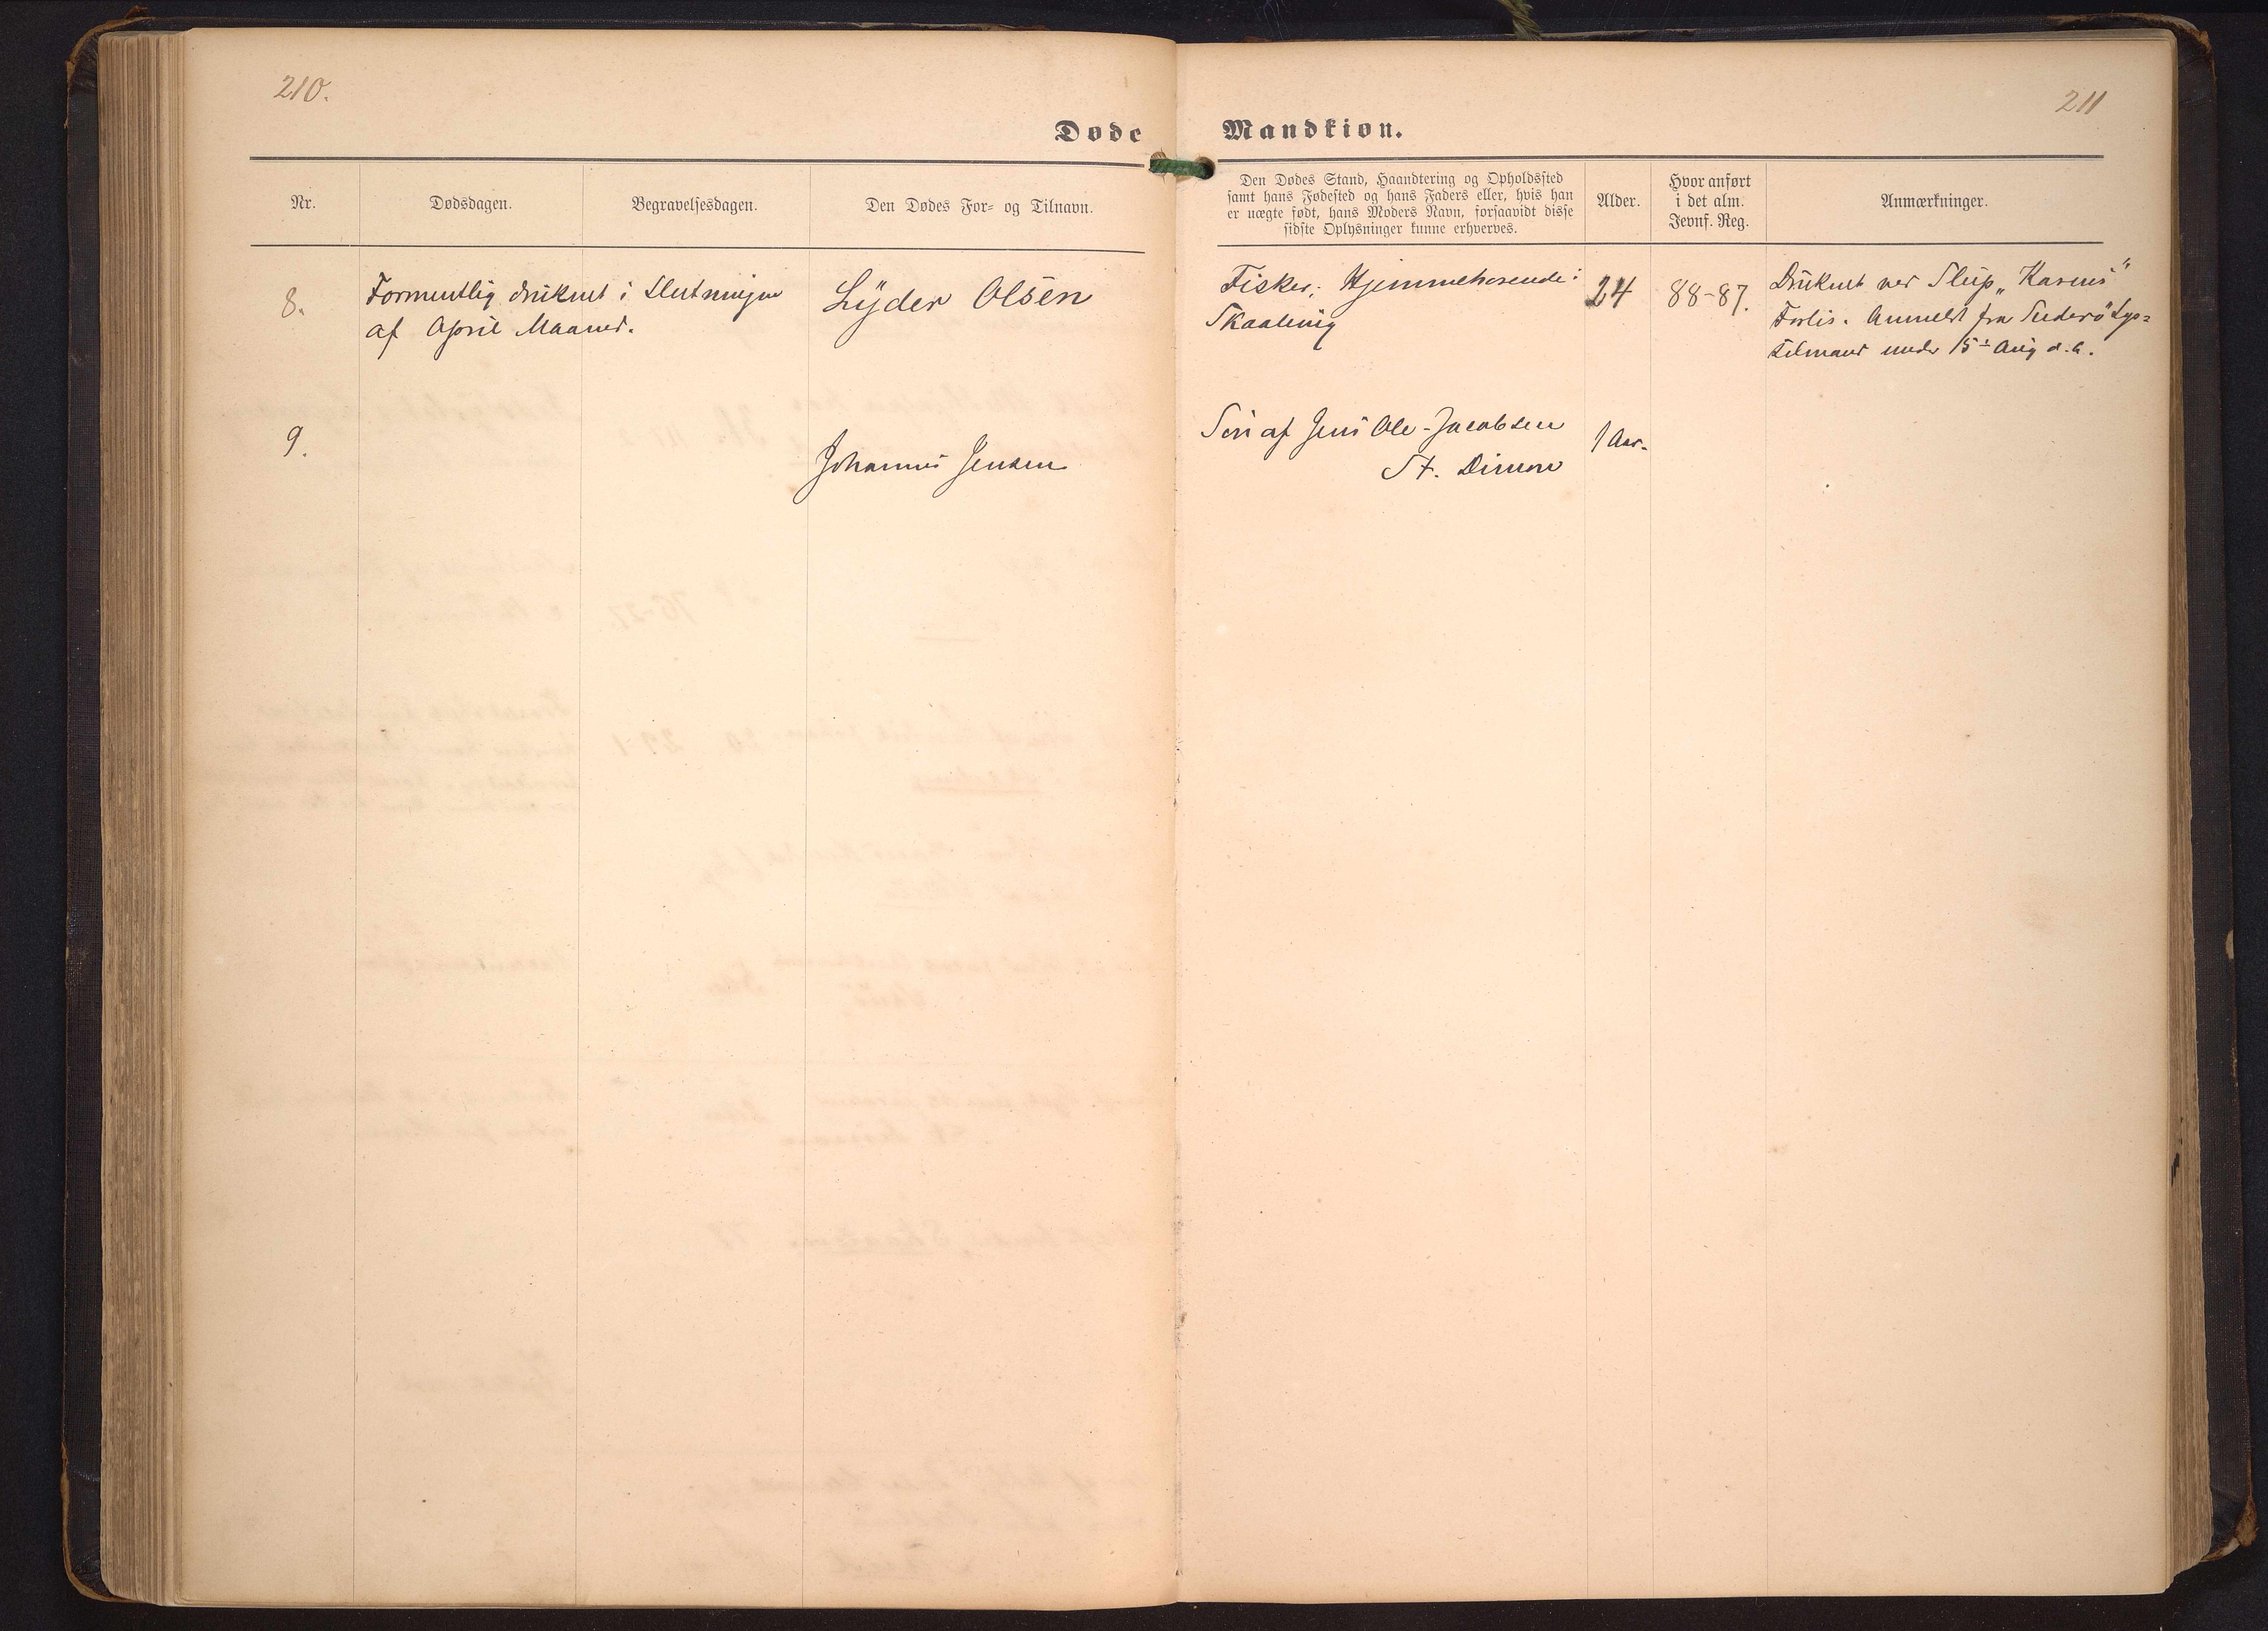 210.
211
Døde
Mandkiøn.
Nr.
Dødsdagen.
Begravelsesdagen.
Den Dødes For- og Tilnavn.
Den Dødes Stand, Haandtering og Opholdssted
samt hans Fødested og hans Faders eller, hvis han
er uægte født, hans Moders Navn, forsaavidt disse
sidste Oplysninger kunne erhverves.
Alder.
Hvor anført
i det alm.
Jevnf. Reg.
Anmærkninger.
8.
Formentlig druknet i Slutningen
af April Maaned.
Lyder Olsen
Fisker; Hjemmehørende i
Skaalevig
24
88-87.
Druknet ved Slup „Karens“
Forlis. Anmeldt fra Suderø Sys=
selmand under 15de Aug d.A.
9.
Johannes Jensen
Søn af Jens Ole Jacobsen
St. Dimon
1 Aar.